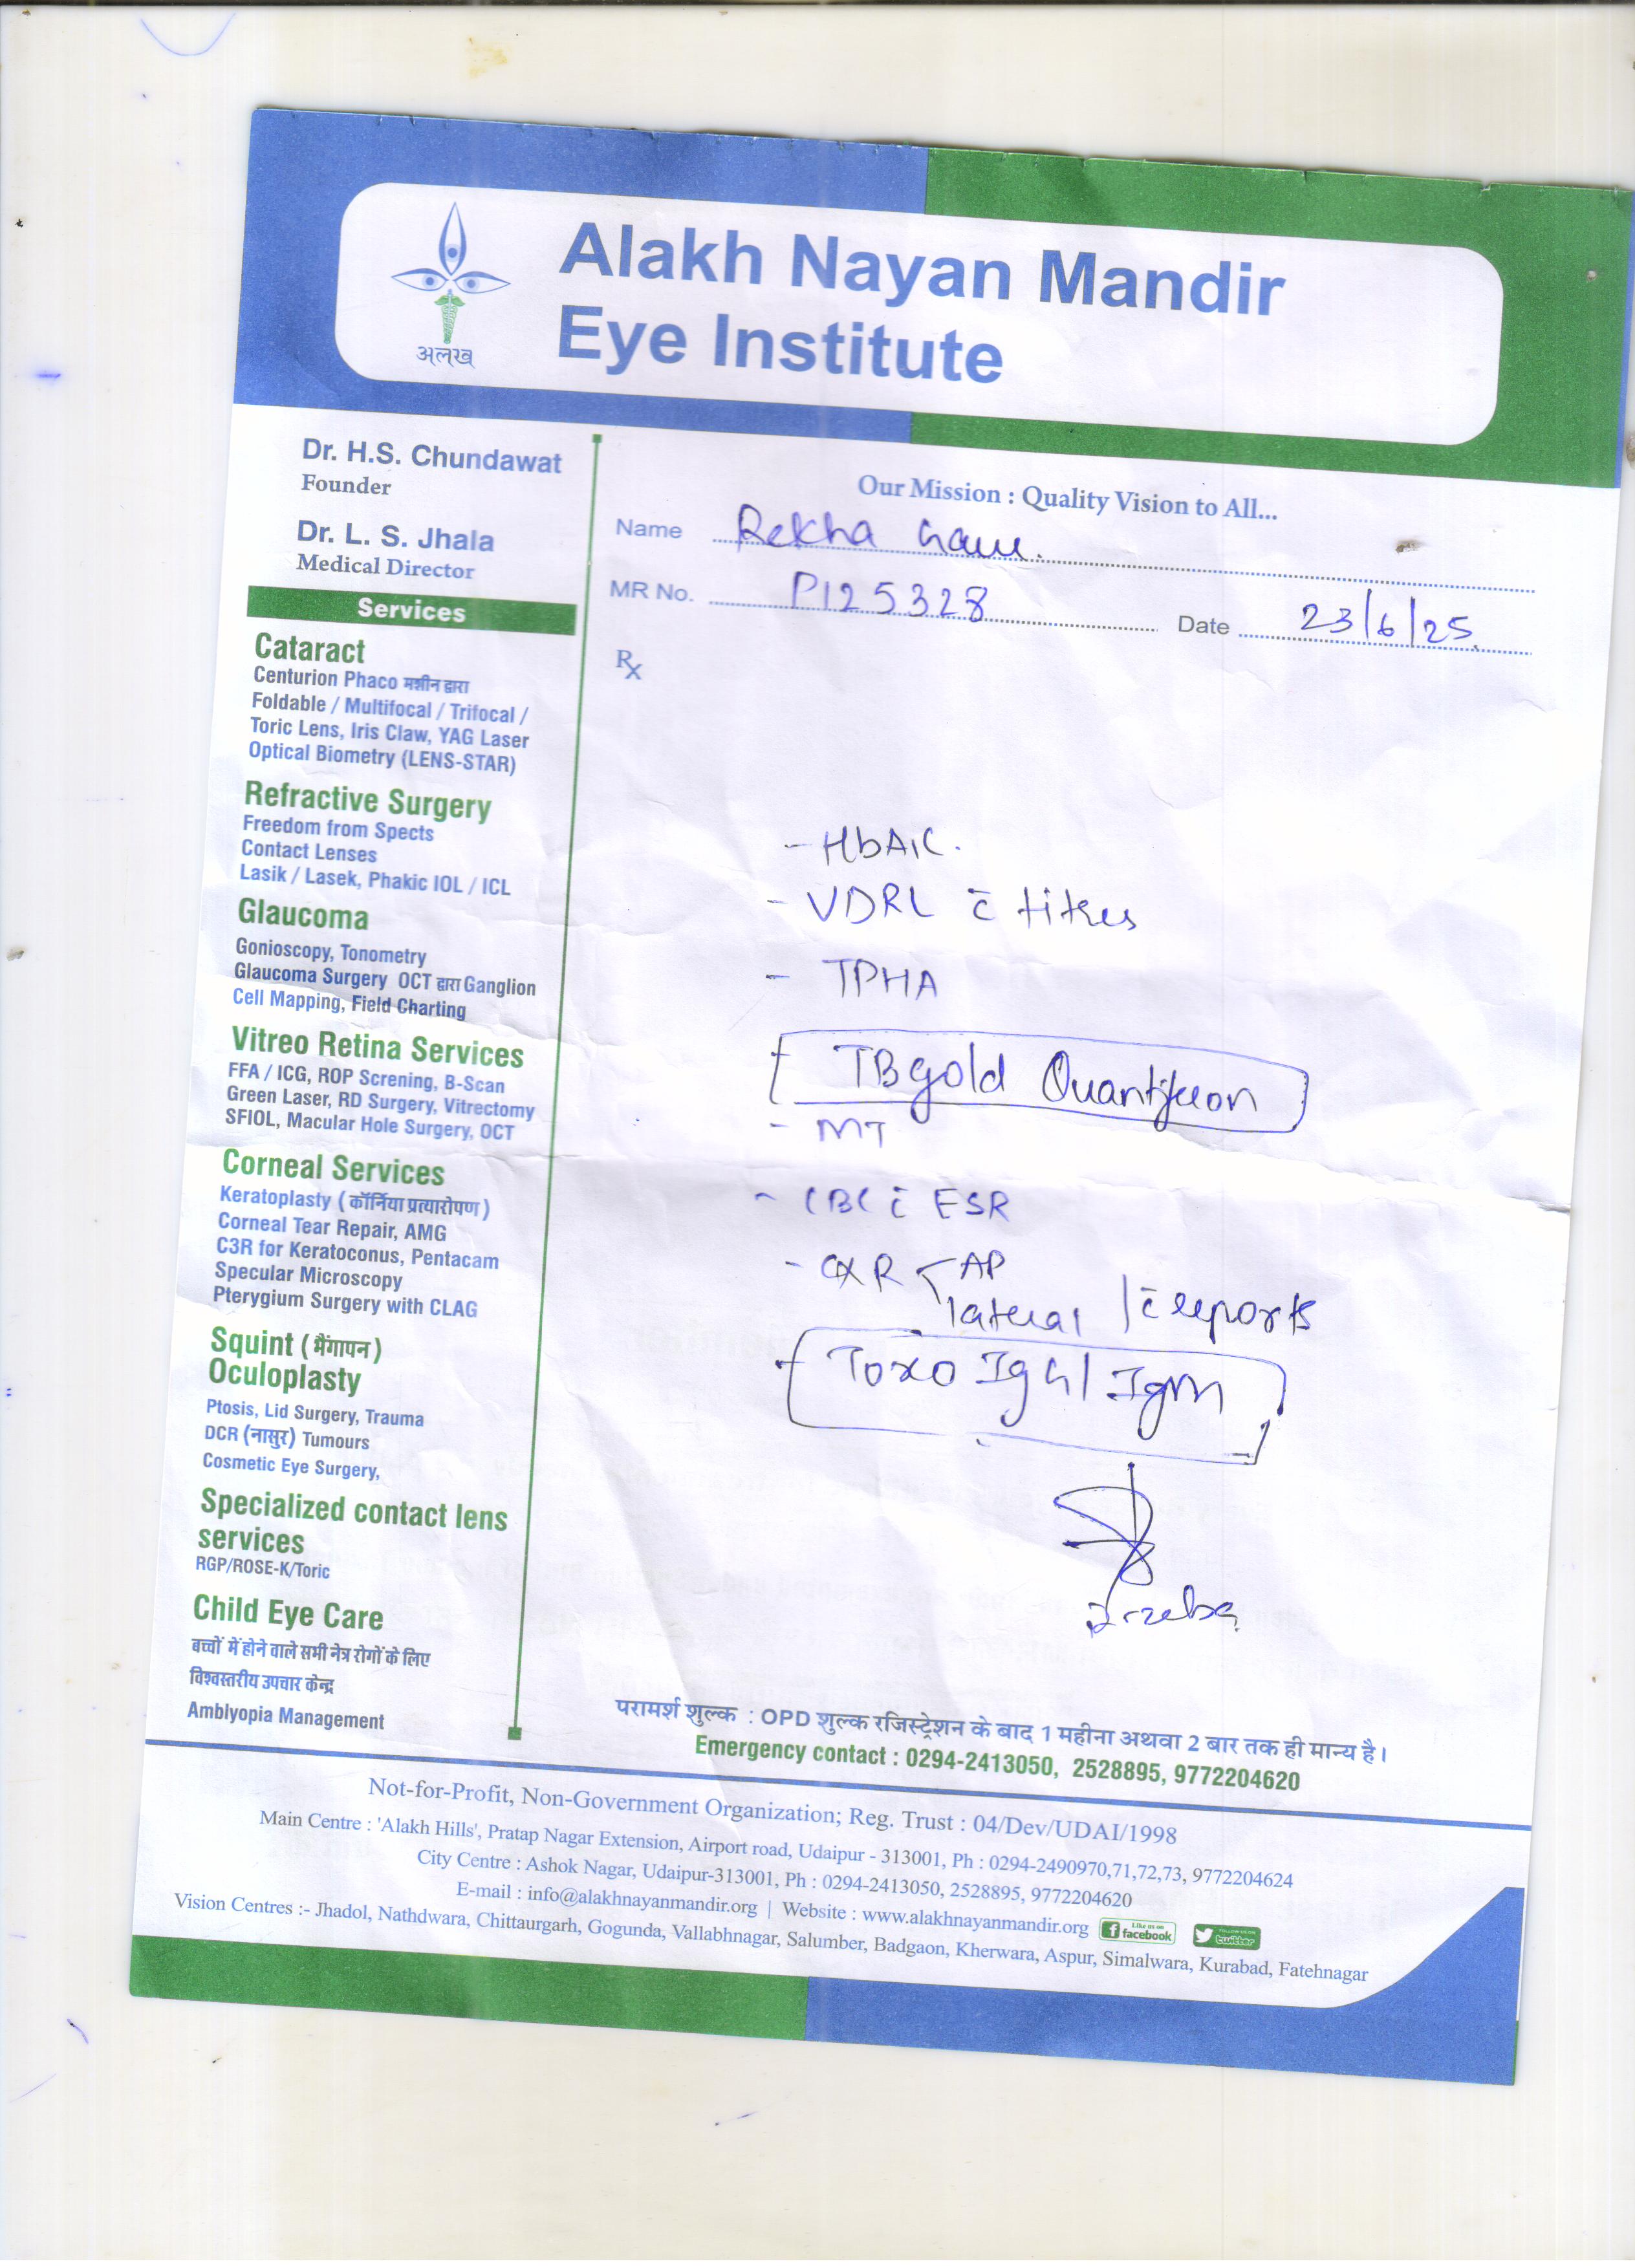 अलख
Alakh Nayan Mandir
Eye Institute
Dr. H.S. Chundawat
Founder
Dr. L. S. Jhala
Medical Director
Services
Cataract
Centurion Phaco मशीन द्वारा
Foldable / Multifocal / Trifocal /
Toric Lens, Iris Claw, YAG Laser
Optical Biometry (LENS-STAR)
Refractive Surgery
Freedom from Spects
Contact Lenses
Lasik / Lasek, Phakic IOL / ICL
Glaucoma
Gonioscopy, Tonometry
Glaucoma Surgery OCT द्वारा Ganglion
Cell Mapping, Field Charting
Vitreo Retina Services
FFA / ICG, ROP Screning, B-Scan
Green Laser, RD Surgery, Vitrectomy
SFIOL, Macular Hole Surgery, OCT
Corneal Services
Keratoplasty (कॉर्निया प्रत्यारोपण)
Corneal Tear Repair, AMG
C3R for Keratoconus, Pentacam
Specular Microscopy
Pterygium Surgery with CLAG
Squint (भैंगापन)
Oculoplasty
Ptosis, Lid Surgery, Trauma
DCR (नासुर) Tumours
Cosmetic Eye Surgery,
Specialized contact lens
services
RGP/ROSE-K/Toric
Child Eye Care
बच्चों में होने वाले सभी नेत्र रोगों के लिए
विश्वस्तरीय उपचार केन्द्र
Amblyopia Management
Our Mission : Quality Vision to All...
Name Rekha
MR No. P125328 Date 23/6/25
Rx
- HbA1C.
- VDRL c̄ titres
- TPHA
- TBgold Quantiferon
- MT
- CBC c̄ ESR
- CXR AP
lateral / c̄ reports
- Toxo IgG / IgM
परामर्श शुल्क : OPD शुल्क रजिस्ट्रेशन के बाद 1 महीना अथवा 2 बार तक ही मान्य है।
Emergency contact : 0294-2413050, 2528895, 9772204620
Not-for-Profit, Non-Government Organization; Reg. Trust : 04/Dev/UDAI/1998
Main Centre : 'Alakh Hills', Pratap Nagar Extension, Airport road, Udaipur - 313001, Ph : 0294-2490970,71,72,73, 9772204624
City Centre : Ashok Nagar, Udaipur-313001, Ph : 0294-2413050, 2528895, 9772204620
E-mail : info@alakhnayanmandir.org | Website : www.alakhnayanmandir.org Like us on facebook twitter
Vision Centres :- Jhadol, Nathdwara, Chittaurgarh, Gogunda, Vallabhnagar, Salumber, Badgaon, Kherwara, Aspur, Simalwara, Kurabad, Fatehnagar